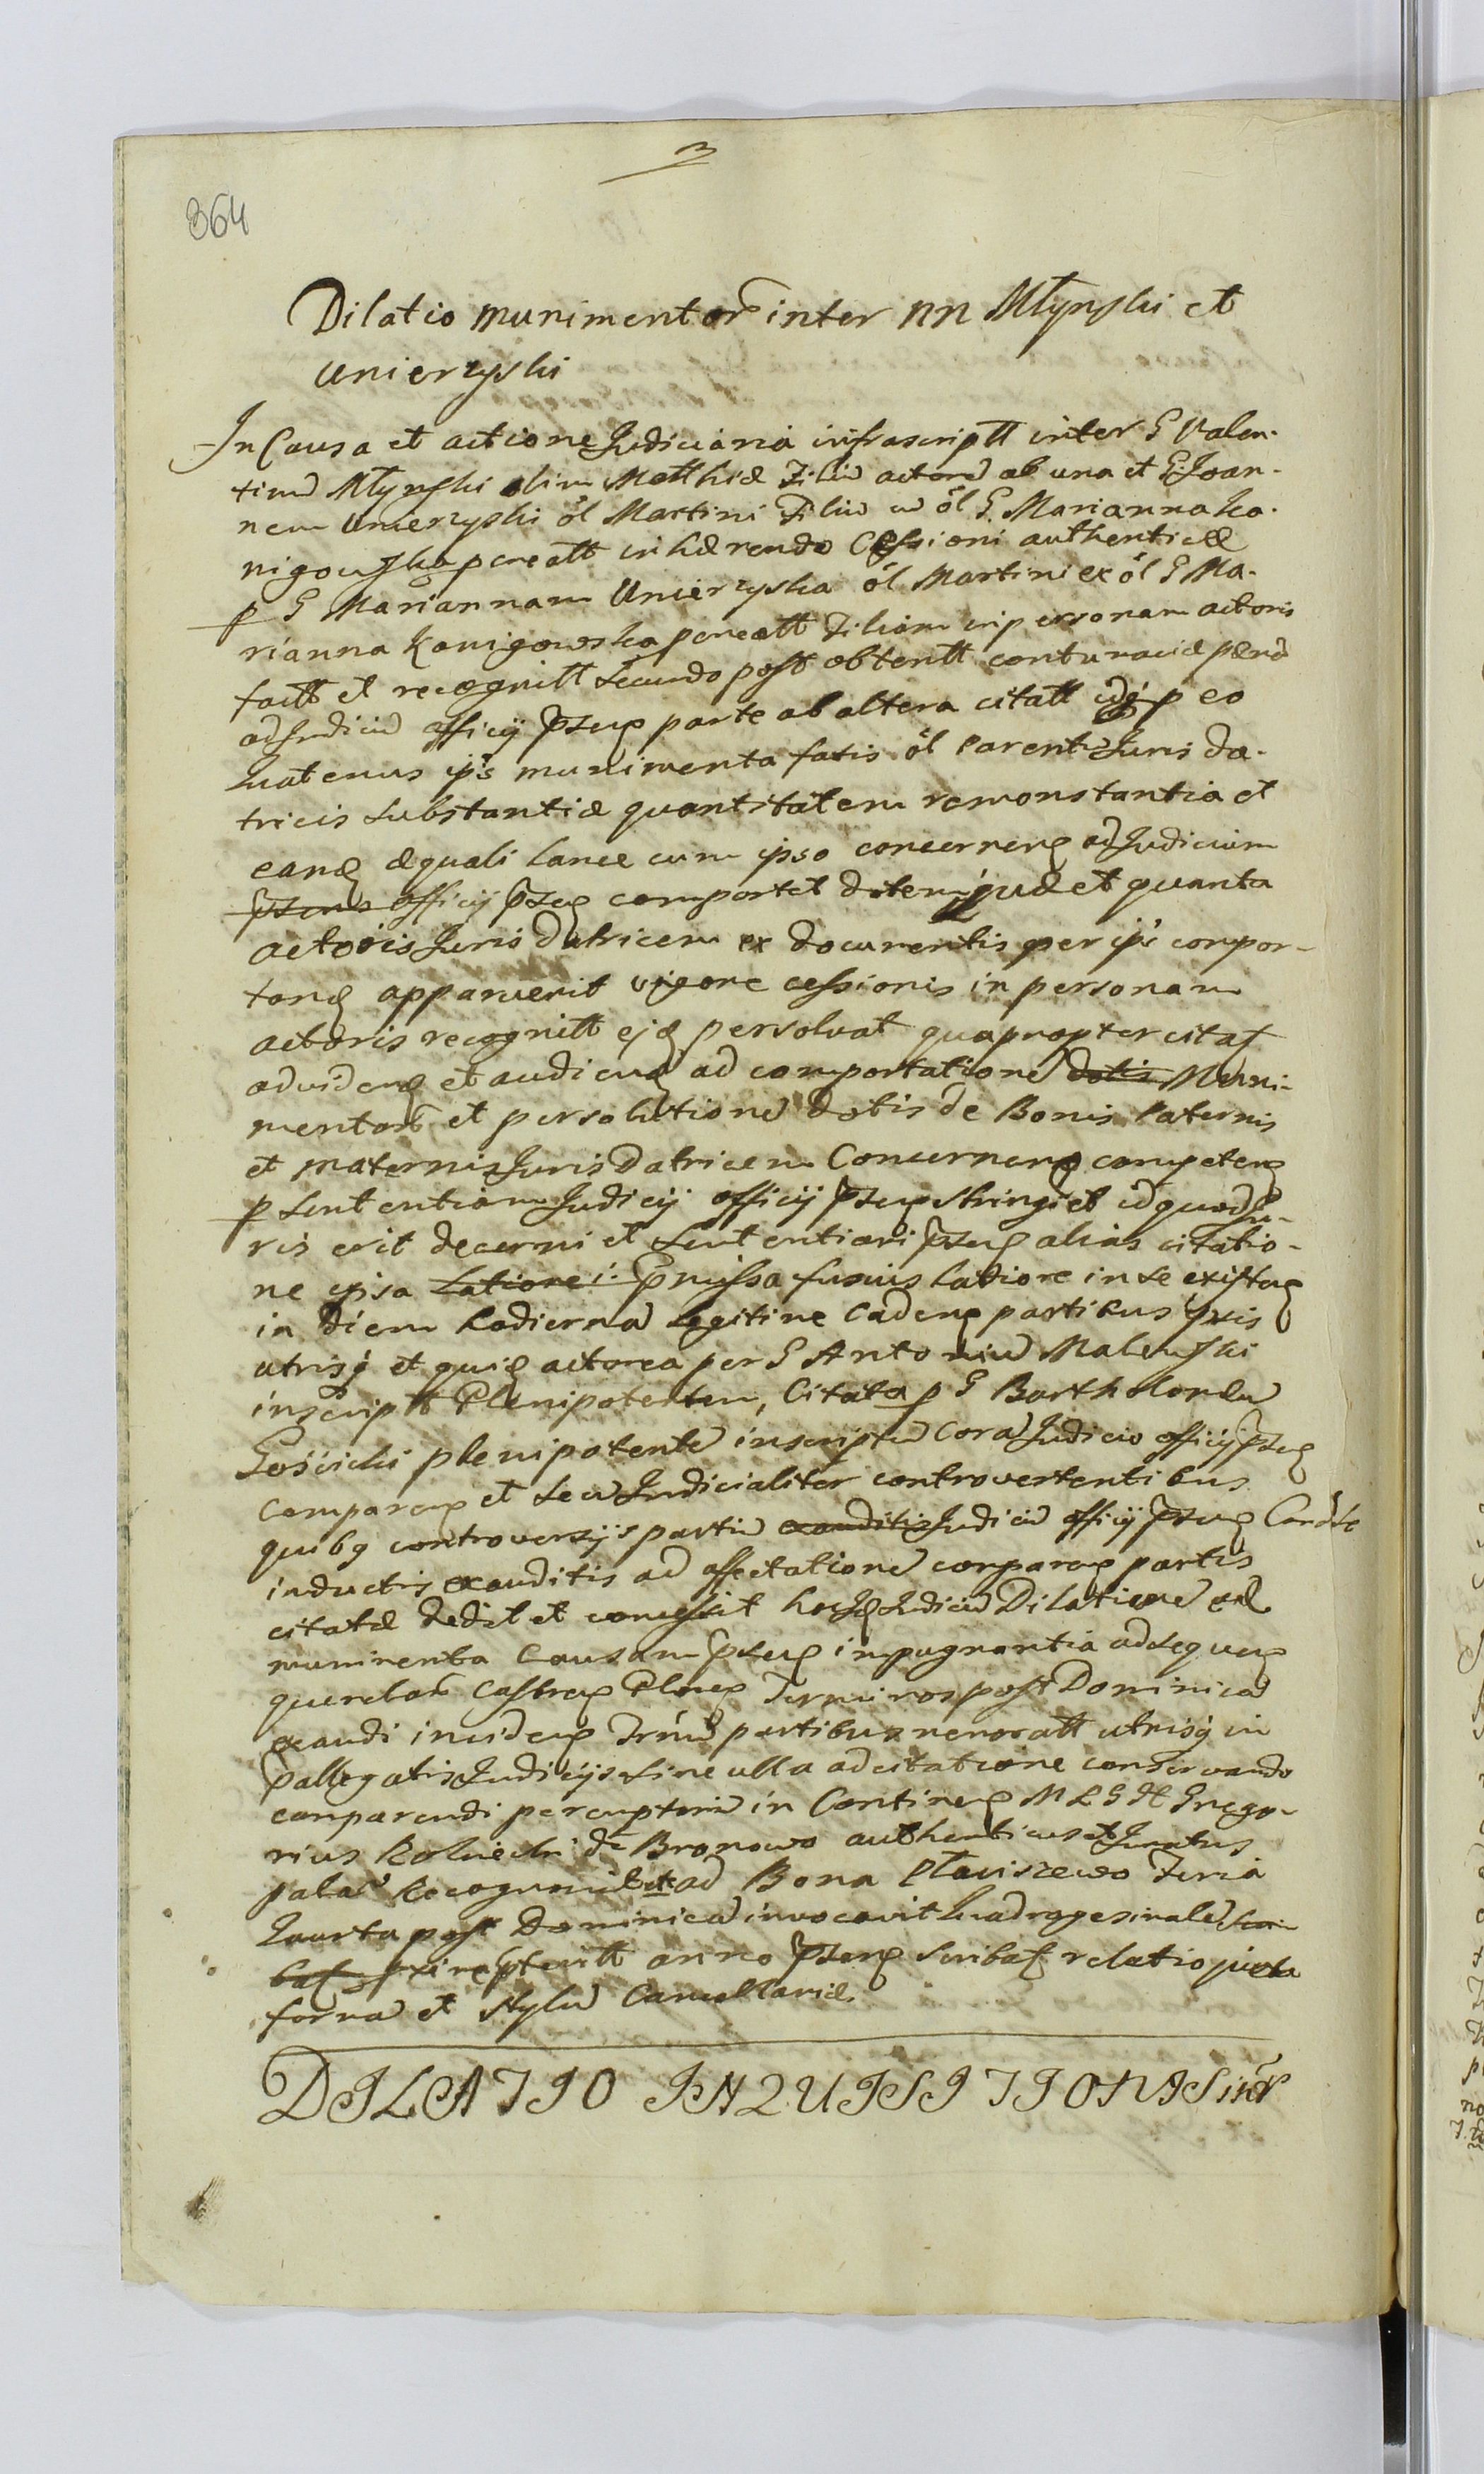 3
364
Dilatio munimentor inter nn Młynski et
Unierzyski
In Causa et actione Judiciaria infrascriptt inter G Valen-
tinu Młynski olim Matthiæ Filiu actore ab una et G. Joan-
nem Unierzyski ol Martini Filiu ol G. Marianna Ko-
nigowska pcreatt inhærendo Cessioni authenticæ
p G Mariannam Unierzyska ol Martini ex ol G Ma-
rianna Konigowska pcreatt Filiam in personam actoris
factt et recognitt secundo post obtentt contumaciæ
ad Judiciu officij pseng parte ab altera citatt idq p eo
quatenus ips munimenta fatis ol Parent Juris da-
tricis substantiæ quantitatem remonstrantia et
eand æquali lance cum ipso concerneng ad Judicium
psens officij pseng comportet dotemq et quanta
actoris Juris datricem ex documentis per ips compor-
tand apparuerit vigore cessionis in personam
actoris recognitt ejd persolvat quapropter citat
ad videnq et audienq ad comportatione dotis Muni-
mentor et persolutione dotis de Bonis Paternis
et maternis Juris datricem Concerneng competeng
p sententiam Judicij officij pseng stringi et id quod Ju-
ris erit decerni et sententiari pseng alias citatio-
ne ipsa Latione i: pmissa fusius latiore in se existeng
in diem hodierna legitime Cadeng partibus psis
utrisq et quid actorea per G Antoniu Malewski
inscriptt Plenipotentem, Citata p G Bartholomeu
Gościcki plenipotente inscriptu Cora Judicio officij pseng
compareng et se Judicialiter controvertentibus
quibg controversijs partiu exauditis Judiciu officij pseng
inductis exauditis ad affectatione compareng partis
citatæ dedit et concessit Judiciu Dilatione ad
munimenta Causam pseng impugnantia ad seq
querelar Castreng Plneg Terminos post Dominica
exaudi incideng Trnu partibus memoratt utrisq in
pallegatis Judicijs sine ulla adcitatione conservando
comparendi peremptoriu in Contineng M L G H Grego-
rius Kolniecki de Bronowo authenticus et Juratus
palar Recognovit ad Bona Pławiszewo Feria
quarta post Dominica invocavit quadragesimale
anno pseng scribat relatio juxta
forma et stylu Cancellariæ.
DILATIO INQUISITIONIS inter